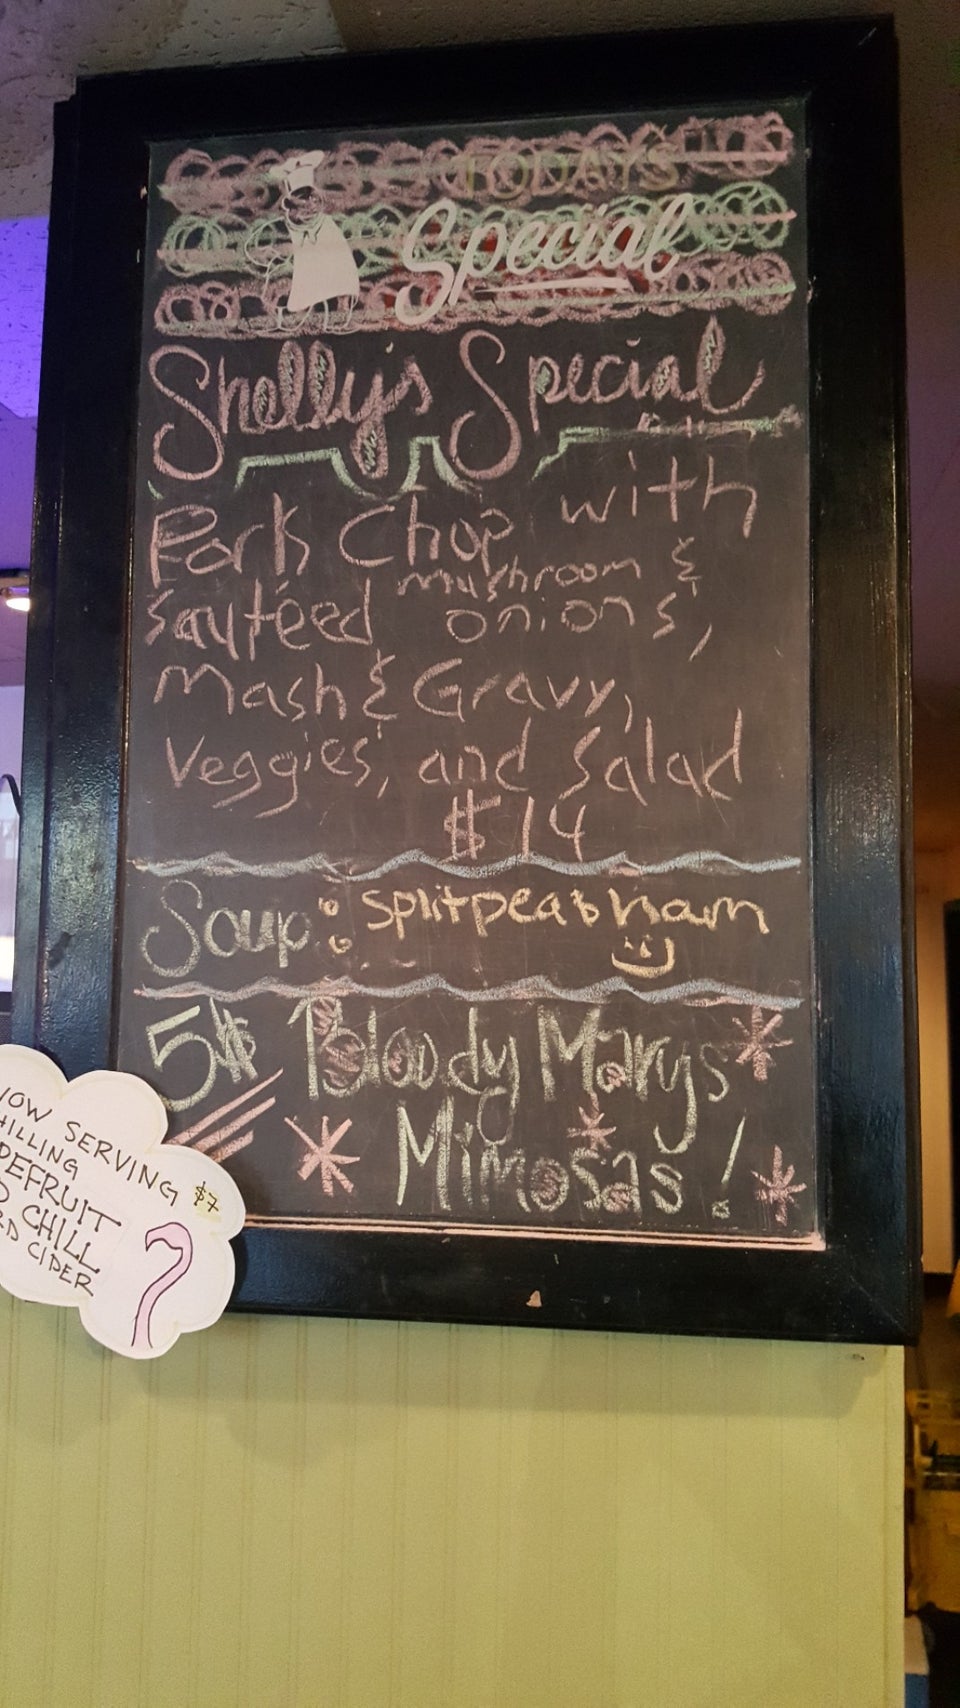 TODAYS
Special
Shelly's Special
Pork Chop with
Sauteed mushroom &
onions,
Mash & Gravy,
Veggies, and Salad
$14
Soup: Splitpea & ham
5$ Bloody Marys
Mimosas!
NOW SERVING $7
CHILL
CIDER